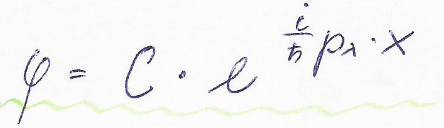 φ = C · e^{\frac{i}{ħ} p_x · x}